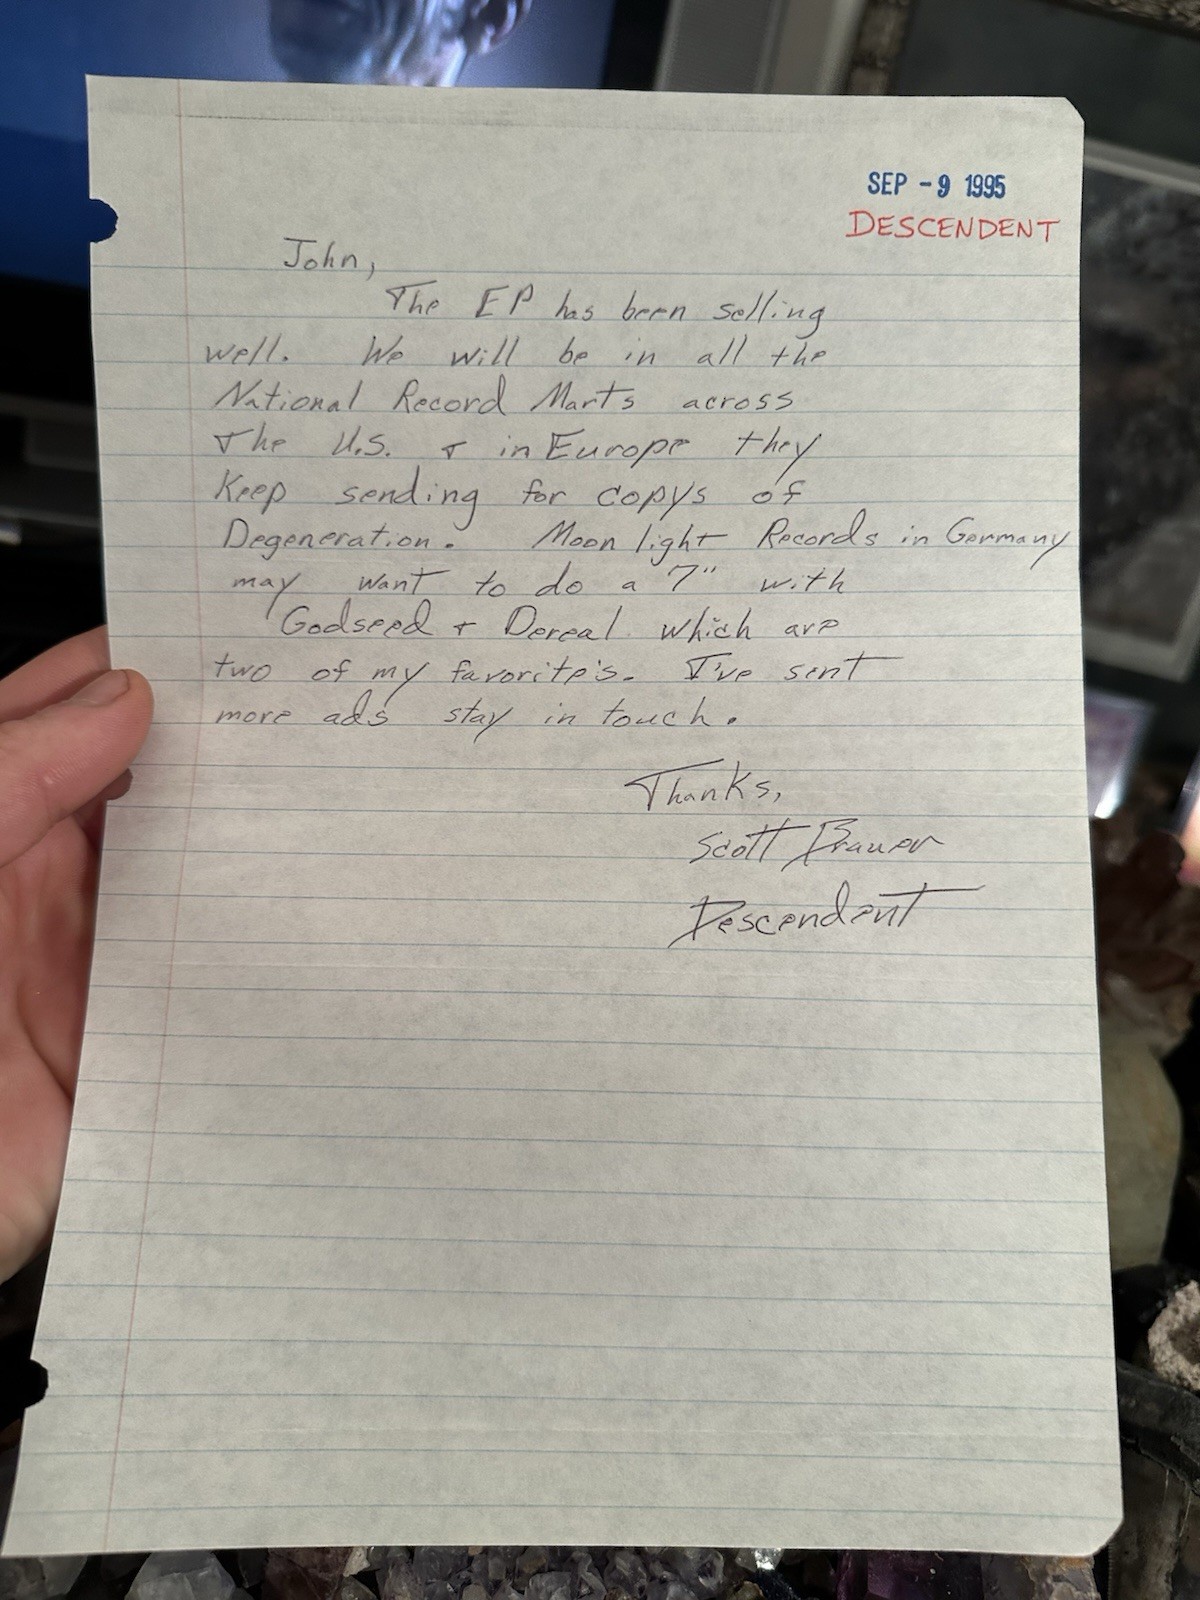 SEP -9 1995
DESCENDENT
John,
The EP has been selling
well. We will be in all the
National Record Marts across
The U.S. + in Europe they
Keep sending for copys of
Degeneration. Moonlight Records in Germany
may want to do a 7" with
Godseed + Dereal which are
two of my favorite's. I've sent
more ads stay in touch.
Thanks,
Scott Brauer
Descendent